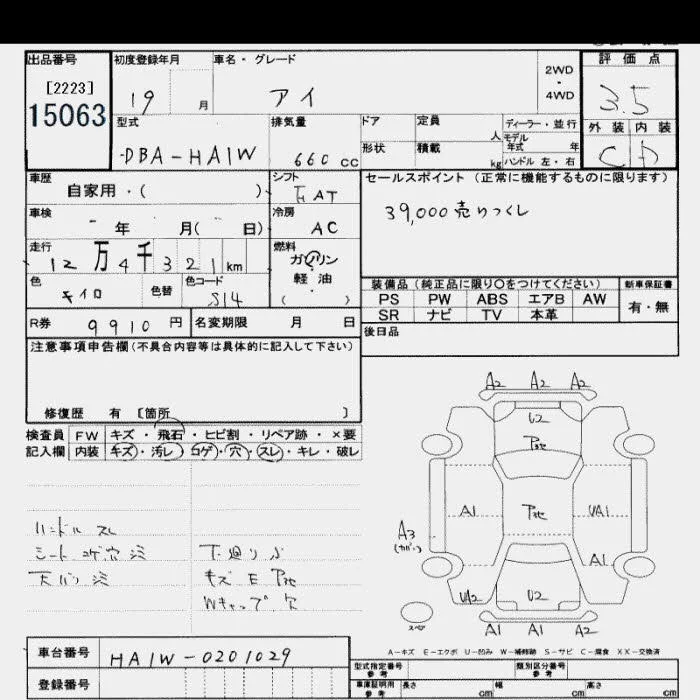 出品番号 初度登録年月 車名・グレード 評価点
[2223]
15063
19 月 アイ 2WD ・ 4WD 3.5
型式 排気量 ドア 定員 人 ディーラー・並行 外装 内装
DBA-HA1W 660 cc 形状 積載 kg モデル年式 年 C D
ハンドル 左・右
車歴 シフト セールスポイント (正常に機能するものに限ります)
自家用・( ) FAT
39,000売りつくし
車検 冷房
- 年 月( 日) AC
走行 燃料
12万4千321km ガソリン・
軽油
( )
色 色替 色コード
キイロ S14
装備品 (純正品に限り○をつけてください) 新車保証書
PS PW ABS エアB AW 有・無
SR ナビ TV 本革
R券 9910 円 名変期限 月 日
後日品
注意事項申告欄(不具合内容等は具体的に記入して下さい)
修復歴 有 [箇所 ]
検査員 FW キズ・飛石・ヒビ割・リペア跡・×要
記入欄 内装 キズ・汚レ・コゲ・穴・スレ・キレ・破レ
A2 A2 A2
U2
A1 UA1
A3
(カバー)
A1
UA2 U2
スペア
A1 A1 A2
ハンドル スレ
シート コゲ穴 シミ 下廻り
天バリ シミ キズ E
Wキャップ 穴
A-キズ E-エクボ U-凹み W-補修跡 S-サビ C-腐食 XX-交換済
車台番号 HA1W-0201029
登録番号
型式指定番号 参考 類別区分番号 参考
車庫証明用 参考 長さ cm 幅 cm 高さ cm